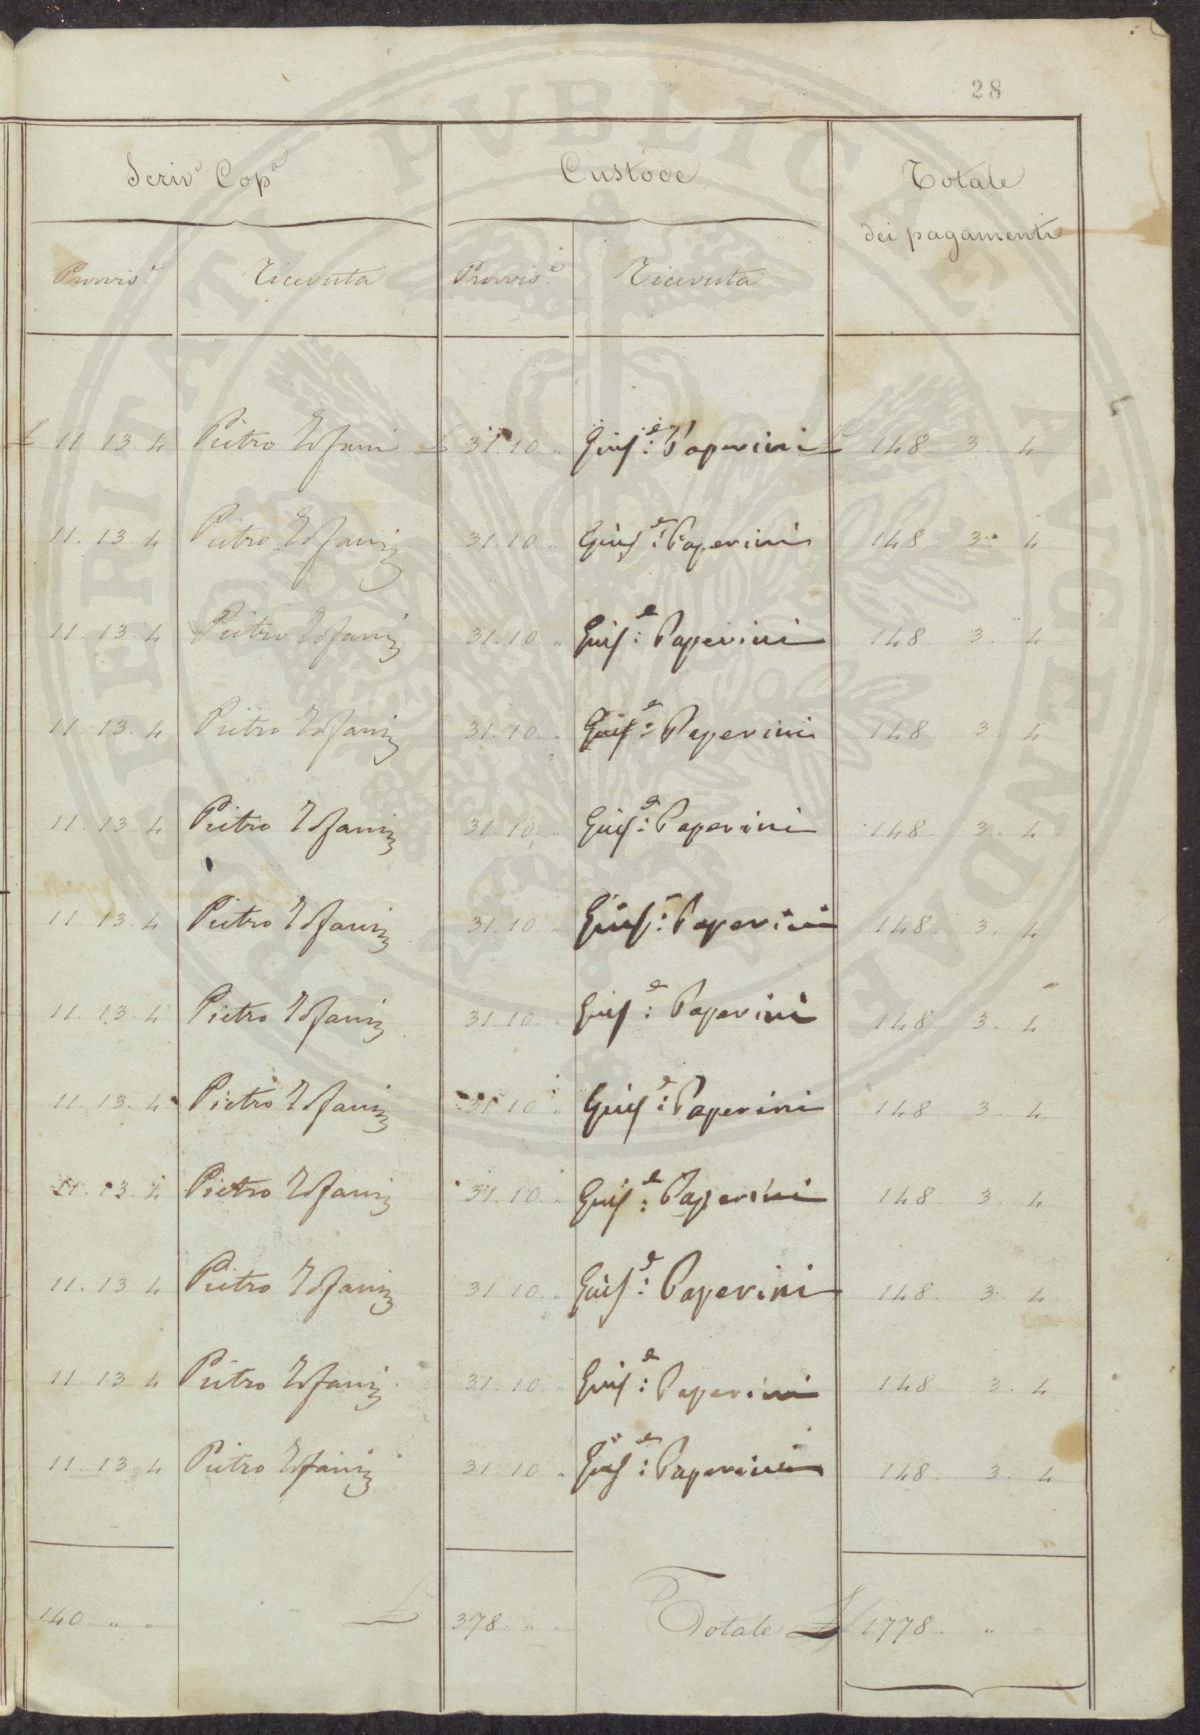 28
Scriv.e Cop.a Custode Totale
dei pagamenti
Provvis.e Ricevuta Provvis.e Ricevuta
£ 11. 13. 4 Pietro £ 31. 10 „ Gius.e Paperini £ 148. 3. 4
11. 13. 4 Pietro 31. 10 „ Gius.e Paperini 148. 3. 4
11. 13. 4 Pietro 31. 10 „ Gius.e Paperini 148. 3. 4
11. 13. 4 Pietro 31. 10 „ Gius.e Paperini 148 3. 4
11. 13. 4 Pietro 31. 10 „ Gius.e Paperini 148. 3. 4
11. 13. 4 Pietro 31. 10 „ Gius.e Paperini 148. 3. 4
11. 13. 4 Pietro 31. 10 „ Gius.e Paperini 148. 3. 4
11. 13. 4 Pietro 31. 10 „ Gius.e Paperini 148. 3. 4
11. 13. 4 Pietro 31. 10 „ Gius.e Paperini 148. 3. 4
11. 13. 4 Pietro 31. 10 „ Gius.e Paperini 148. 3. 4
11. 13. 4 Pietro 31. 10 „ Gius.e Paperini 148. 3. 4
11. 13. 4 Pietro 31. 10 „ Gius.e Paperini 148. 3. 4
140 „ „ £ 378 „ „ Totale £ 1778. „ „